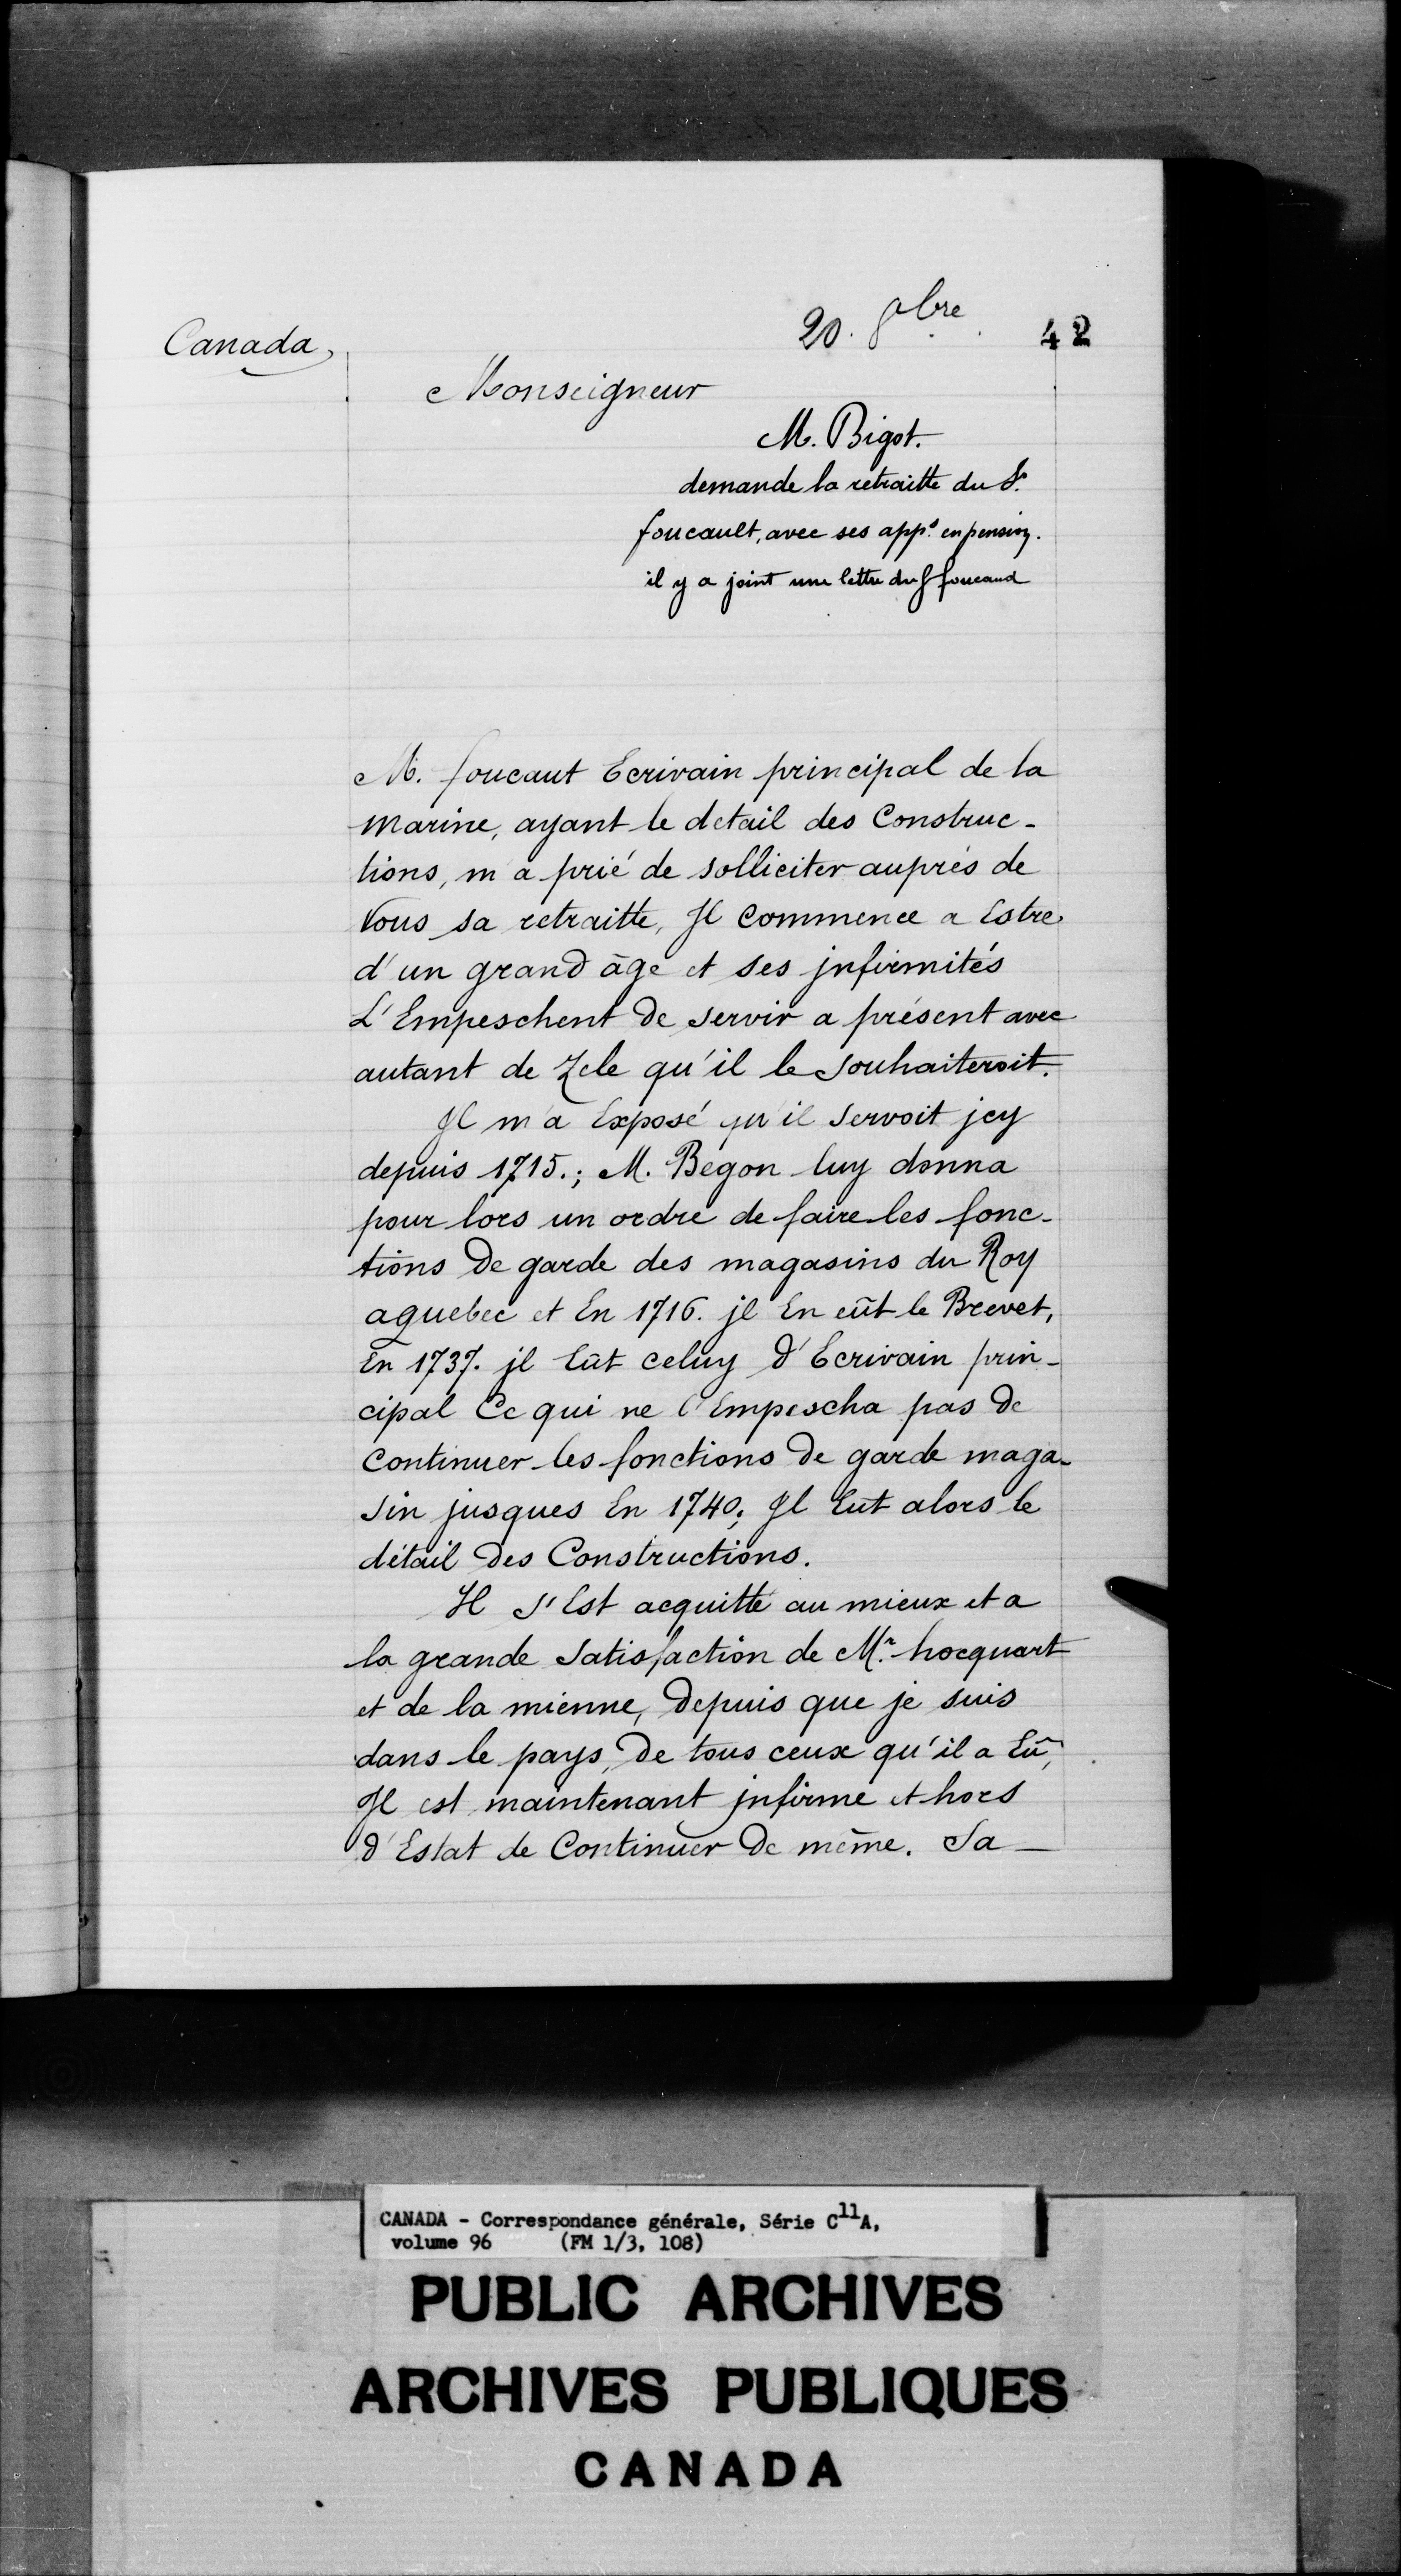 Canada,
20. 8bre. 42
Monseigneur
M. Bigot.
demande la retraitte du S.
foucault, avec ses app.s en pension.
il y a joint une lettre du S foucaud
M. foucaut Ecrivain principal de la
Marine, ayant le detail des Construc-
tions, m'a prié de solliciter auprés de
Vous sa retraitte, Jl commence a Estre
d'un grand âge et ses jnfirmités
L'Empeschent De servir a présent avec
autant de Zele qu'il le souhaiteroit.
Jl m'a Exposé qu'il servoit jcy
depuis 1715.; M. Begon luy donna
pour lors un ordre de faire les fonc-
tions De garde des magasins du Roy
a quebec et En 1716. jl En eût le Brevet,
En 1737. jl Eût celuy d'Ecrivain prin-
cipal Ce qui ne l'Empescha pas De
Continuer les fonctions De garde maga-
sin jusques En 1740; Jl Eut alors le
détail Des Constructions.
Jl s'Est acquitté au mieux et a
la grande satisfaction de M.r hocquart
et de la mienne, Depuis que je suis
dans le pays, De tous ceux qu'il a Eû,
Jl est maintenant jnfirme et hors
d'Estat de Continuer De même. Sa _
CANADA - Correspondance générale, Série C11A,
volume 96 (FM 1/3, 108)
PUBLIC ARCHIVES
ARCHIVES PUBLIQUES
CANADA